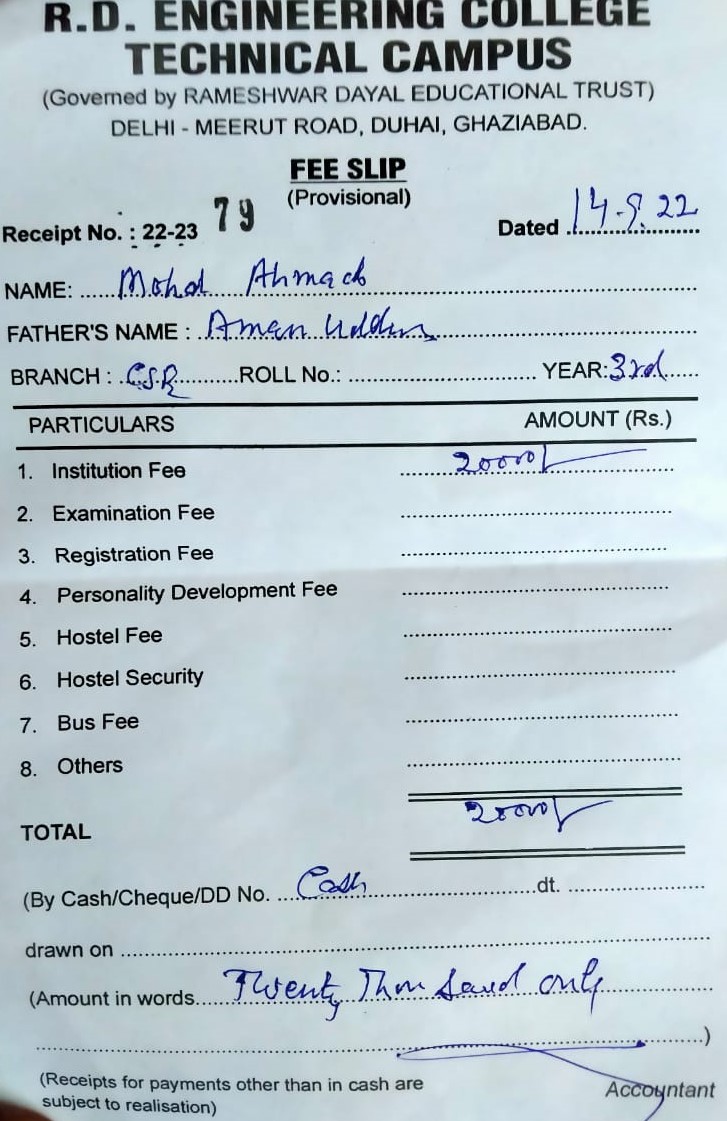 R.D. ENGINEERING COLLEGE
TECHNICAL CAMPUS
(Governed by RAMESHWAR DAYAL EDUCATIONAL TRUST)
DELHI - MEERUT ROAD, DUHAI, GHAZIABAD.
FEE SLIP
(Provisional)
Receipt No. : 22-23 79 Dated 14-9.22
NAME: Mohd Ahmad
FATHER'S NAME : Aman Uddin
BRANCH : CSE ROLL No.: YEAR: 3rd
PARTICULARS AMOUNT (Rs.)
1. Institution Fee 20000/
2. Examination Fee
3. Registration Fee
4. Personality Development Fee
5. Hostel Fee
6. Hostel Security
7. Bus Fee
8. Others
TOTAL 20000/
(By Cash/Cheque/DD No. Cash dt.
drawn on
(Amount in words Twenty Thousand only
)
(Receipts for payments other than in cash are
subject to realisation)
Accountant